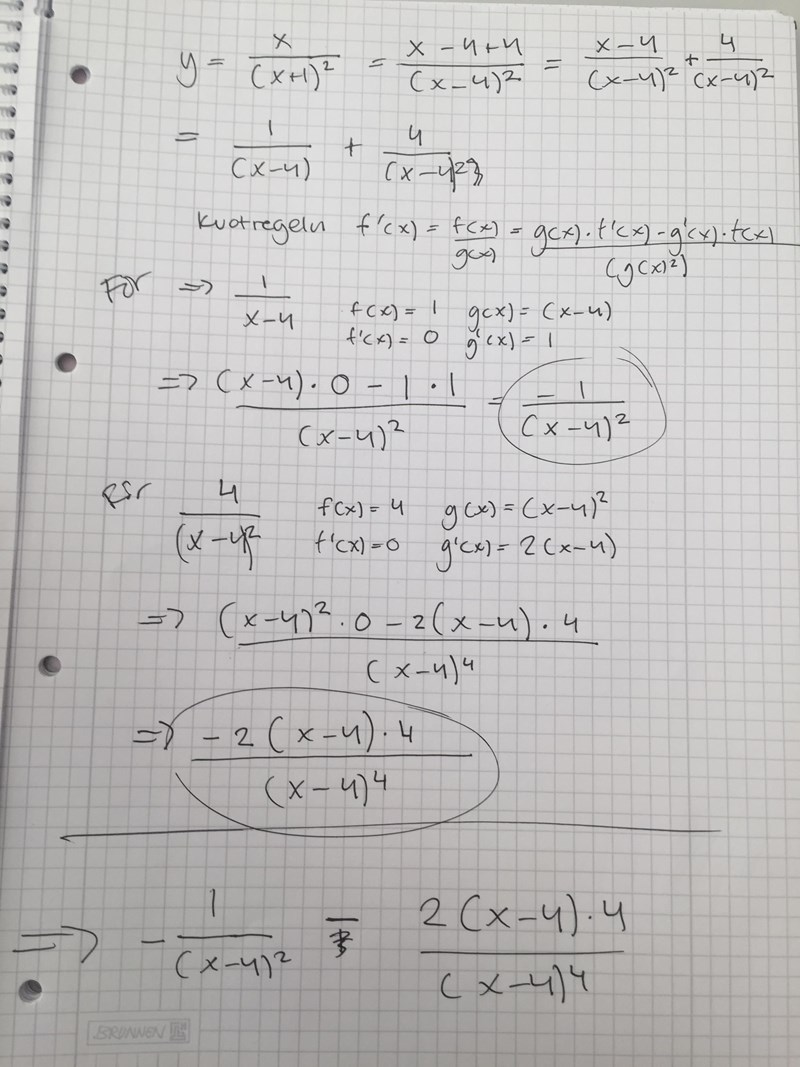 y = x/(x+1)² = (x-4+4)/(x-4)² = (x-4)/(x-4)² + 4/(x-4)²
= 1/(x-4) + 4/(x-4)²
kvotregeln f'(x) = f(x)/g(x) = (g(x)·f'(x)-g'(x)·f(x))/(g(x)²)
För => 1/(x-4) f(x) = 1 g(x) = (x-4)
f'(x) = 0 g'(x) = 1
=> ((x-4)·0 - 1·1)/(x-4)² = -1/(x-4)²
för 4/(x-4)² f(x) = 4 g(x) = (x-4)²
f'(x) = 0 g'(x) = 2(x-4)
=> ((x-4)²·0 - 2(x-4)·4)/(x-4)⁴
=> (-2(x-4)·4)/(x-4)⁴
=> -1/(x-4)² - (2(x-4)·4)/(x-4)⁴
BRUNNEN